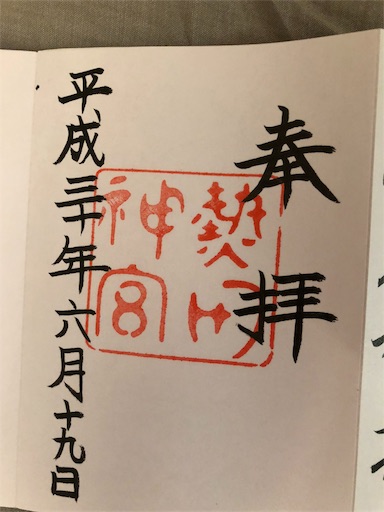 奉拝
熱田
神宮
平成三十年六月十九日